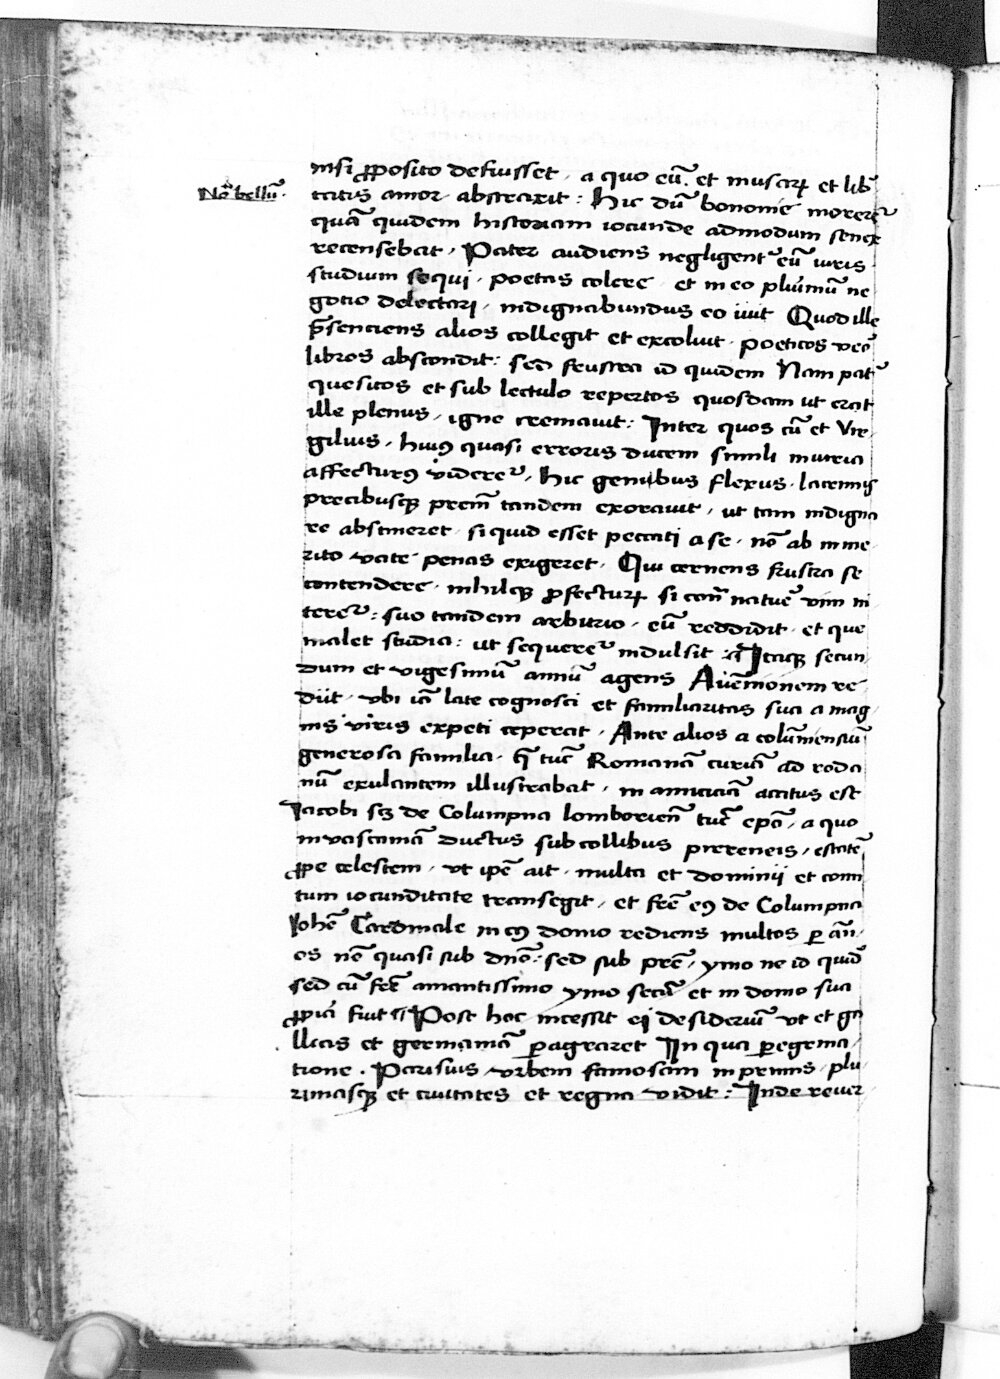 nisi ꝓposito defuisset · a quo eū · et musarꝝ et lib̄
Nō bellū · tatis amor · abstraxit : hic dū bononie moreret᷑
quā quidem historiam iocunde admodum senex
recensebat · Pater audiens negligent᷑ eū iuris
studium sequi · poetas colere · et in eo plurimū ne
gotio delectari · indignabundus eo iuit Quod ille
p̄senciens alios collegit et excoluit · poeticos vero
libros abscondit : sed frustra id quidem Nam pat᷑
quesitos et sub lectulo repertos quosdam ut erat
ille plenus · igne cremauit : Inter quos cū et Vir
gilius · huiꝰ quasi erroris ducem simili muria
affecturꝰ videret᷑ · hic genibus flexus · lacrimis
precibusqꝫ prem̄ tandem exorauit · ut tam indigna
re abstineret · si quid esset peccati a se · nō ab inme
rito vate penas exigeret · Qui cernens frustra se
contendere · nihilqꝫ ꝓfecturꝝ si con̄ nature vim ni
teret᷑ : suo tandem arbitrio · eū reddidit · et que
mallet studia : ut sequeret᷑ indulsit : Itaqꝫ secun
dum et vigesimū annū agens Auēnionem re
diit · vbi iā late cognosci et familiaritas sua a mag
nis viris expeti ceperat · Ante alios a colūmensiū
generosa familia · q̄ tūc Romanā curiā ad roda
nū exulantem illustrabat · in amiciciā accitus est
Jacobi scꝫ de Columpna lomborien̄ tūc epō · a quo
in vasconiā ductus sub collibus pireneis · estatē
ꝓpe celestem · vt ipē ait · multa et dominii et comi
tum iocunditate transegit · et frē eꝰ de Columpna
Johē Cardinale in cꝰ domo rediens multos ꝑ an̄
os nō quasi sub dnō : sed sub prē · ymo ne id quid̄
sed cū frē amantissimo ymo secū et in domo sua
ꝓpria fuit Post hoc incessit ei desideriū vt et ga
llias et germaniā ꝑagraret In qua ꝑegrina
tione · Parisius vrbem famosam in primis · plu
rimasqꝫ et ciuitates et regna vidit : Inde reuer